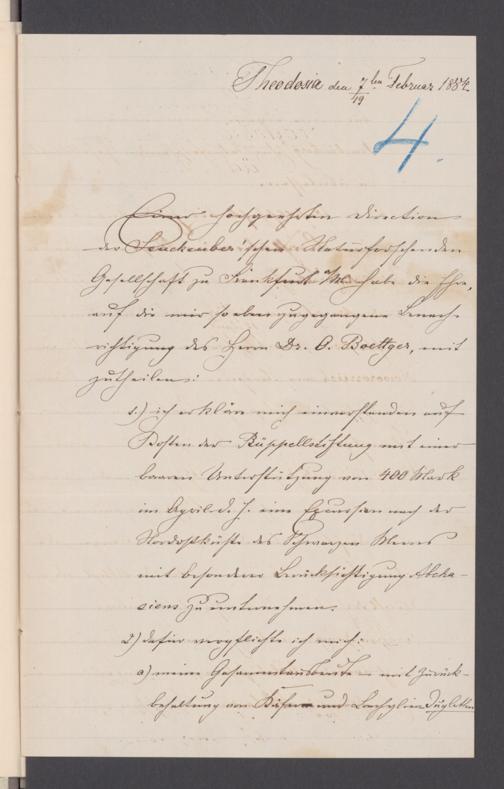 Theodosia den 7/19ten Februar 1884.
4.
Einer hochgeehrten Direction
der Senckenberg'schen Naturforschenden
Gesellschaft zu Frankfurt a/M. habe die Ehre,
auf die mir soeben zugegangene Benach-
richtigung des Herrn Dr. O. Boettger, mit
zutheilen:
1.) ich erkläre mich einverstanden auf
Kosten der Rüppellstiftung mit einer
baaren Unterstützung von 400 Mark
im April d. J. eine Excursion nach der
Nordostküste des Schwarzen Meeres
mit besonderer Berücksichtigung Abcha-
siens zu unternehmen.
2) dafür verpflichte ich mich:
a) meine Gesammtausbeute mit Zurück-
behaltung von Käfern und